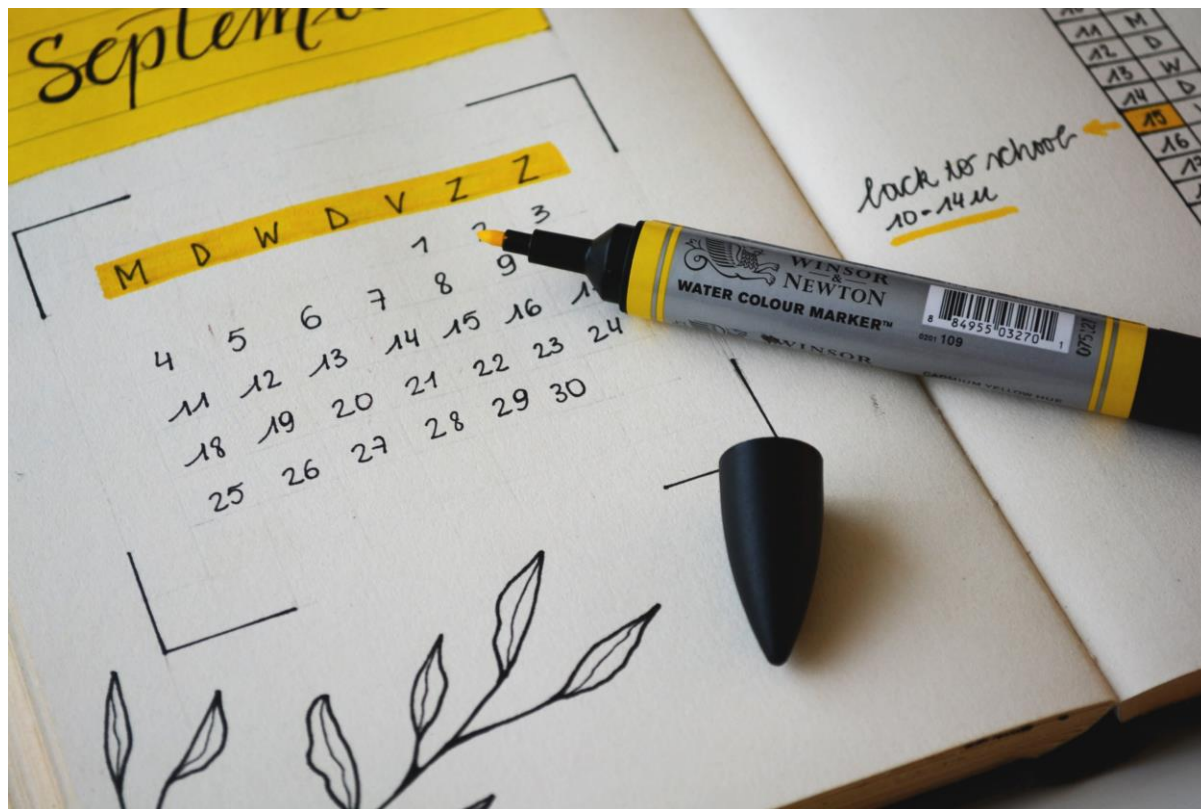 Septem
M D W D V Z Z
1 2 3
4 5 6 7 8 9
11 12 13 14 15 16
18 19 20 21 22 23 24
25 26 27 28 29 30
WINSOR
&
NEWTON
WATER COLOUR MARKER™
WINSOR
8 84955 03270 1
0201 109
075'21
CADMIUM YELLOW HUE
back to school
10-14u
10
11 M
12 D
13 W
14 D
15
16
17